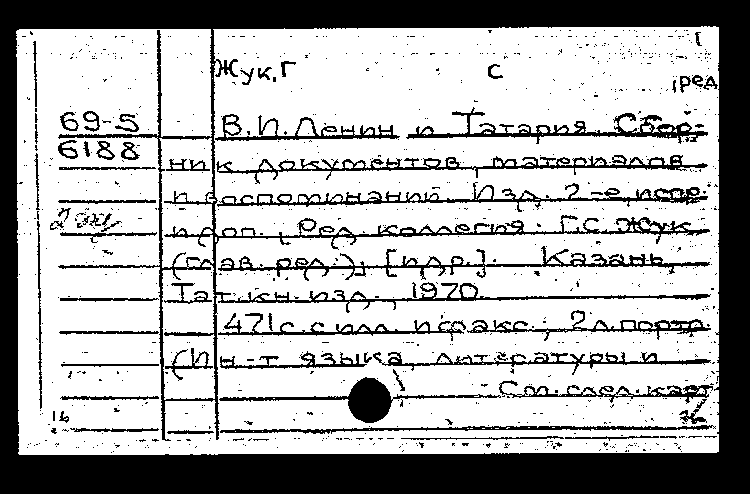 Жук, Г С
, ред
69-5
6188
2 эк
В.И.Ленин и Татария. Сбор-
ник документов, материалов
и воспоминаний. Изд. 2-е, испр.
и доп., Ред. коллегия: Г.С. Жук
(глав. ред.), [и др.]. Казань,
Тат. кн. изд., 1970.
471 с. с илл. и факс.; 2 л. портр.
(Ин-т языка, литературы и
См. след. карт
16